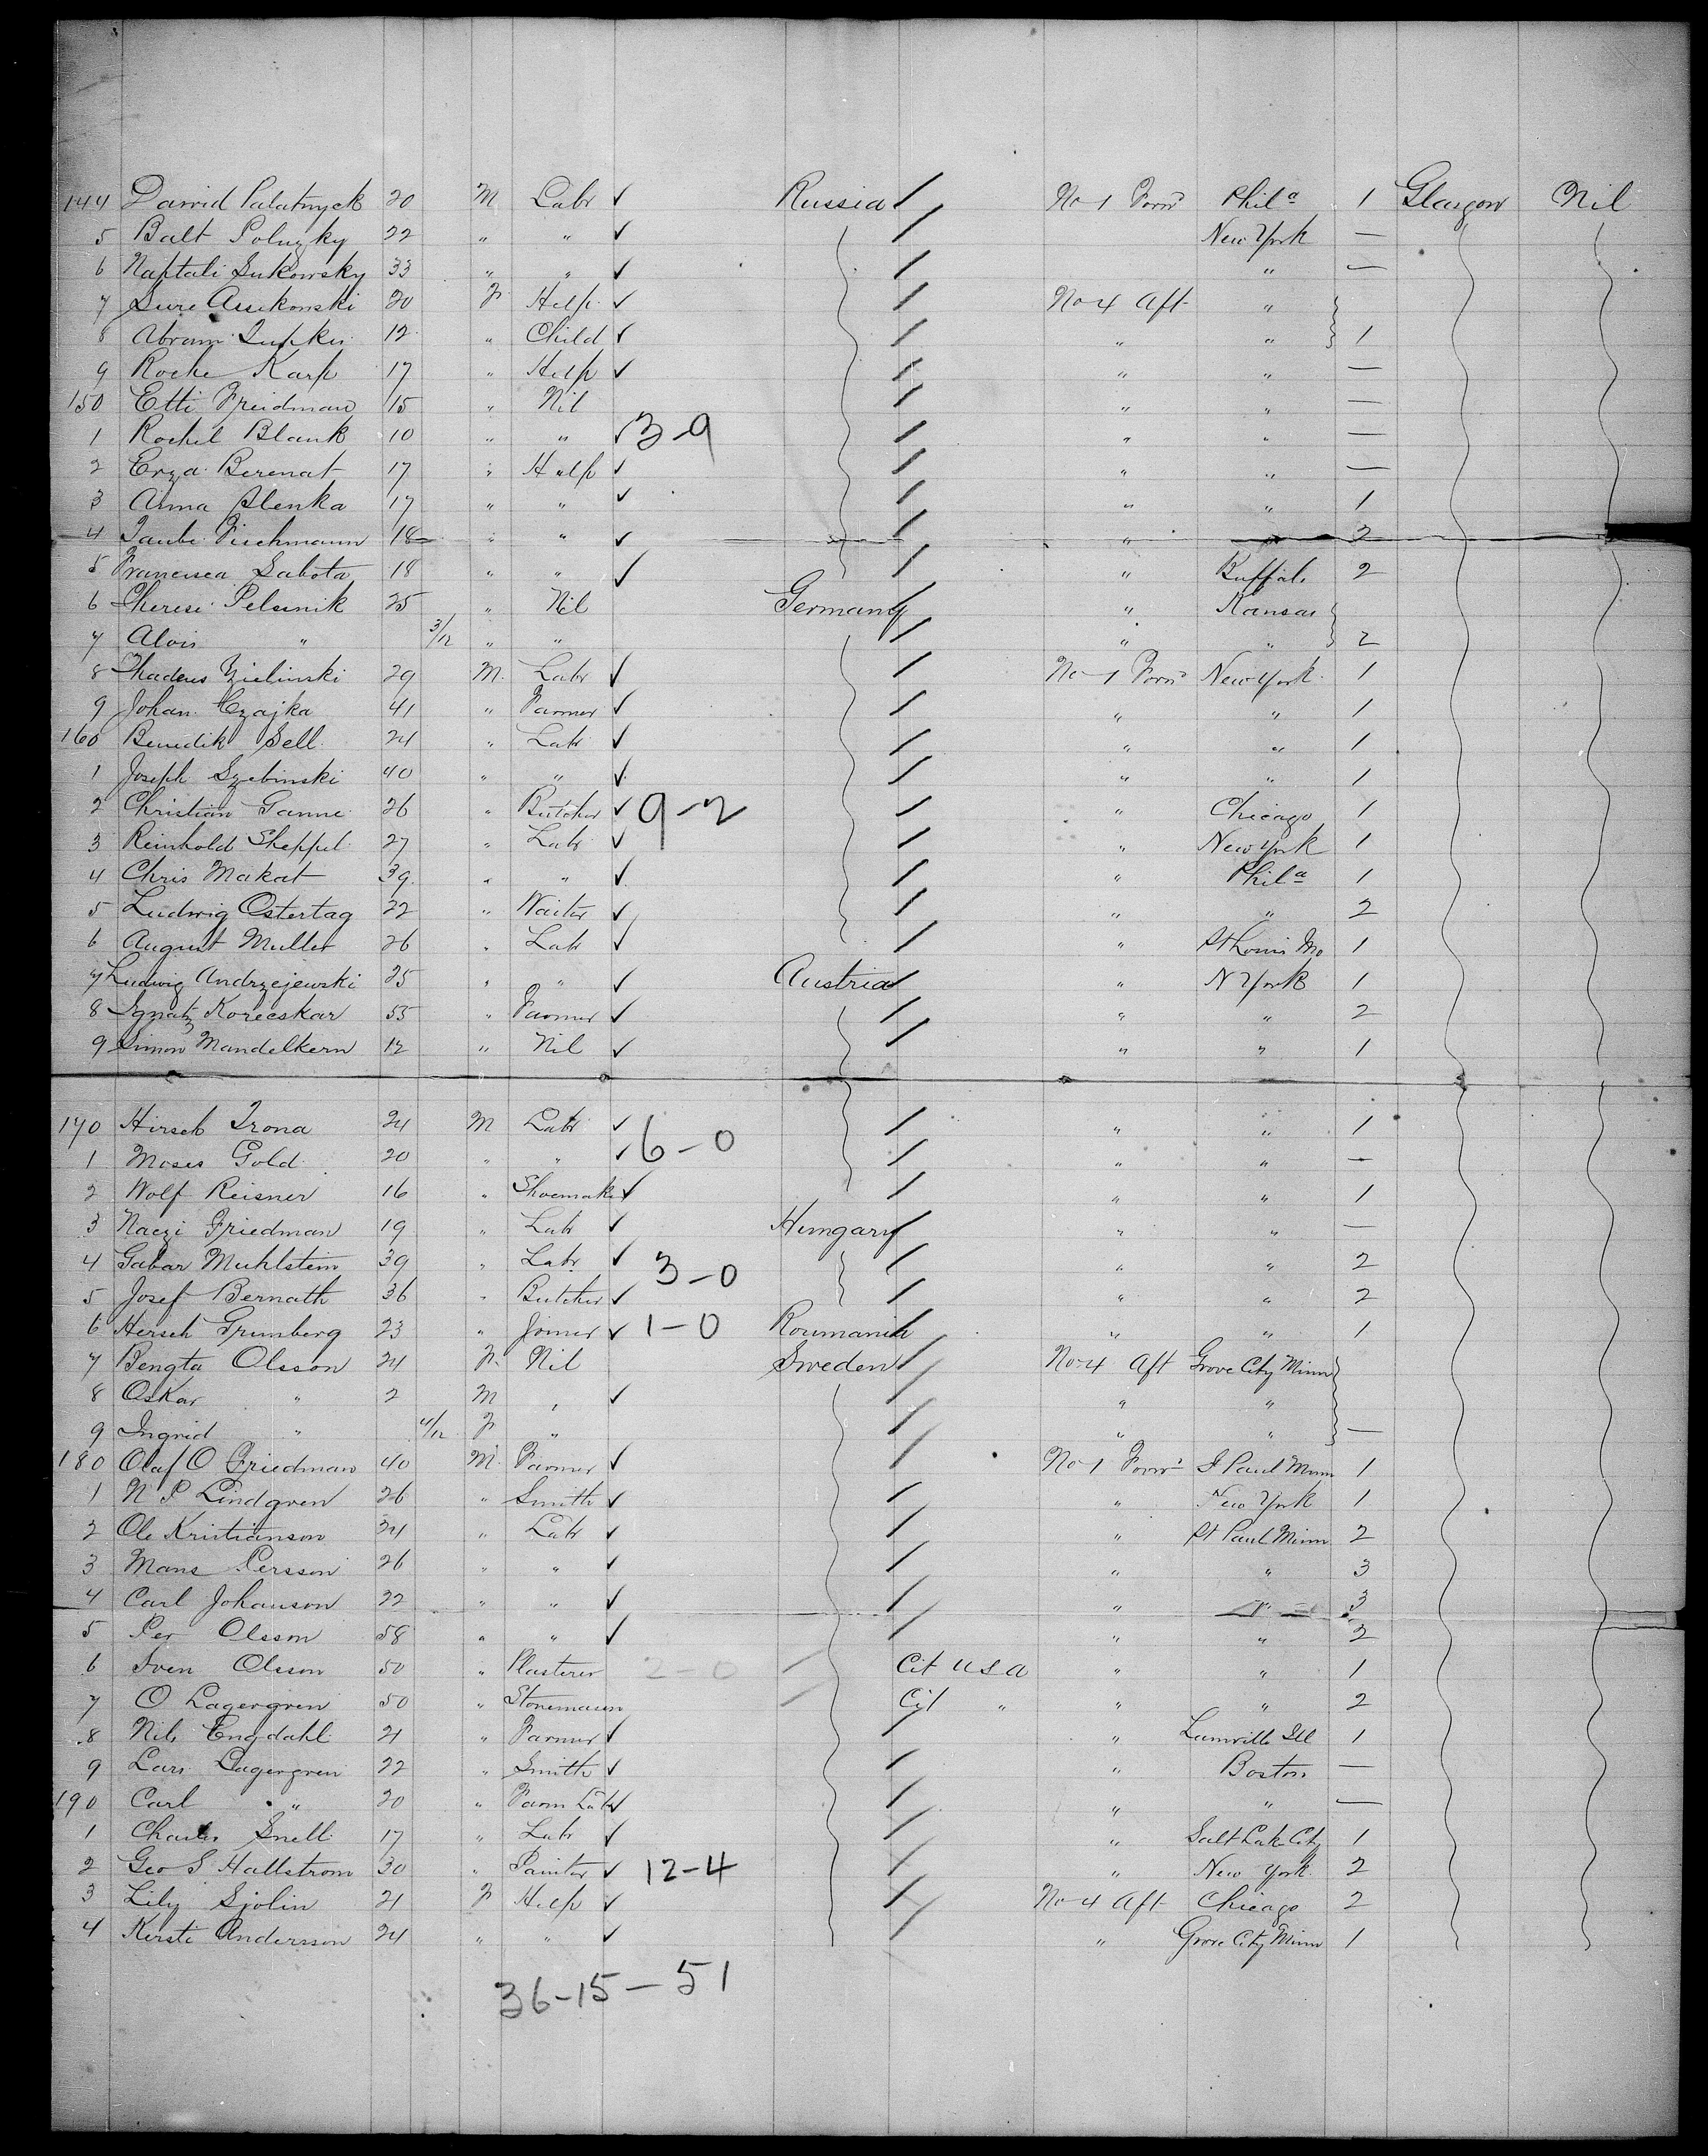 144 Dawid Palatnyck 20 M Labr ✓ Russia / No 1 Forwd Phila 1 Glasgow Nil
5 Balt Poluzky 22 " " ✓ / New York —
6 Naptali Sukowsky 33 " " ✓ / " —
7 Sure Assikonski 20 F Help ✓ / No 4 Aft "
8 Abram Lupkin 12 " Child ✓ / " " 1
9 Roche Karp 17 " Help ✓ / " " —
150 Etti Freidman 15 " Nil / " " —
1 Rochel Blank 10 " " ✓ 3-9 / " " —
2 Erza Berenat 17 " Help ✓ / " " —
3 Anna Slenka 17 " " ✓ / " " 1
4 Taube Fischmann 18 " " ✓ / " " 2
5 Francisca Sabota 18 " " ✓ / " Buffalo 2
6 Therese Pelsinik 25 " Nil Germany / " Kansas
7 Alois " 3/12 " " / " " 2
8 Thadeus Zielinski 29 M Labr ✓ / No 1 Forwd New York 1
9 Johan Czajka 41 " Farmer ✓ / " " 1
160 Benedik Sell 24 " Labr ✓ / " " 1
1 Joseph Szebinski 40 " " ✓ / " " 1
2 Christian Ganne 26 " Butcher ✓ 9-2 / " Chicago 1
3 Reinhold Sheppel 27 " Labr ✓ / " New York 1
4 Chris Makat 39 " " ✓ / " Phila 1
5 Ludwig Ostertag 22 " Waiter ✓ / " " 2
6 August Muller 26 " Labr ✓ / " St Louis Mo 1
7 Ludwig Andrzejewski 25 " " ✓ Austria / " N York 1
8 Ignatz Korecskar 55 " Farmer ✓ / " " 2
9 Simon Mandelkern 12 " Nil ✓ / " " 1
170 Hirsch Trona 24 M Labr ✓ / " " 1
1 Moses Gold 20 " " ✓ 6-0 / " " —
2 Wolf Reisner 16 " Shoemaker ✓ / " " 1
3 Naczi Friedman 19 " Labr ✓ Hungary / " " —
4 Gabar Muhlstein 39 " Labr ✓ 3-0 / " " 2
5 Josef Bernath 36 " Butcher ✓ / " " 2
6 Hersch Grunberg 23 " Joiner ✓ 1-0 Roumania / " " 1
7 Bengta Olsson 24 F Nil Sweden / No 4 Aft Grove City Minn
8 Oskar " 2 M " ✓ / " "
9 Ingrid " 4/12 F " / " " —
180 Olaf O Friedman 40 M Farmer ✓ / No 1 Forwd St Paul Minn 1
1 N P Lindgren 26 " Smith ✓ / " New York 1
2 Ole Kristianson 24 " Labr ✓ / " St Paul Minn 2
3 Mans Persson 26 " " ✓ / " " 3
4 Carl Johanson 22 " " ✓ / " " 3
5 Per Olsson 58 " " ✓ / " " 2
6 Sven Olsson 50 " Plasterer 2-0 / Cit U S A " " 1
7 O Lagergren 50 " Stonemason / Cit " " " 2
8 Nils Engdahl 21 " Farmer ✓ / " Ill 1
9 Lars Lagergren 22 " Smith ✓ / " Boston —
190 Carl " 20 " Farm Labr ✓ / " " —
1 Charles Snell 17 " Labr ✓ / " Salt Lake City 1
2 Geo S Hallstrom 30 " Painter ✓ 12-4 / " New York 2
3 Lily Sjolin 21 F Help ✓ / No 4 Aft Chicago 2
4 Kersti Andersson 24 " " ✓ / " Grove City Minn 1
36-15-51